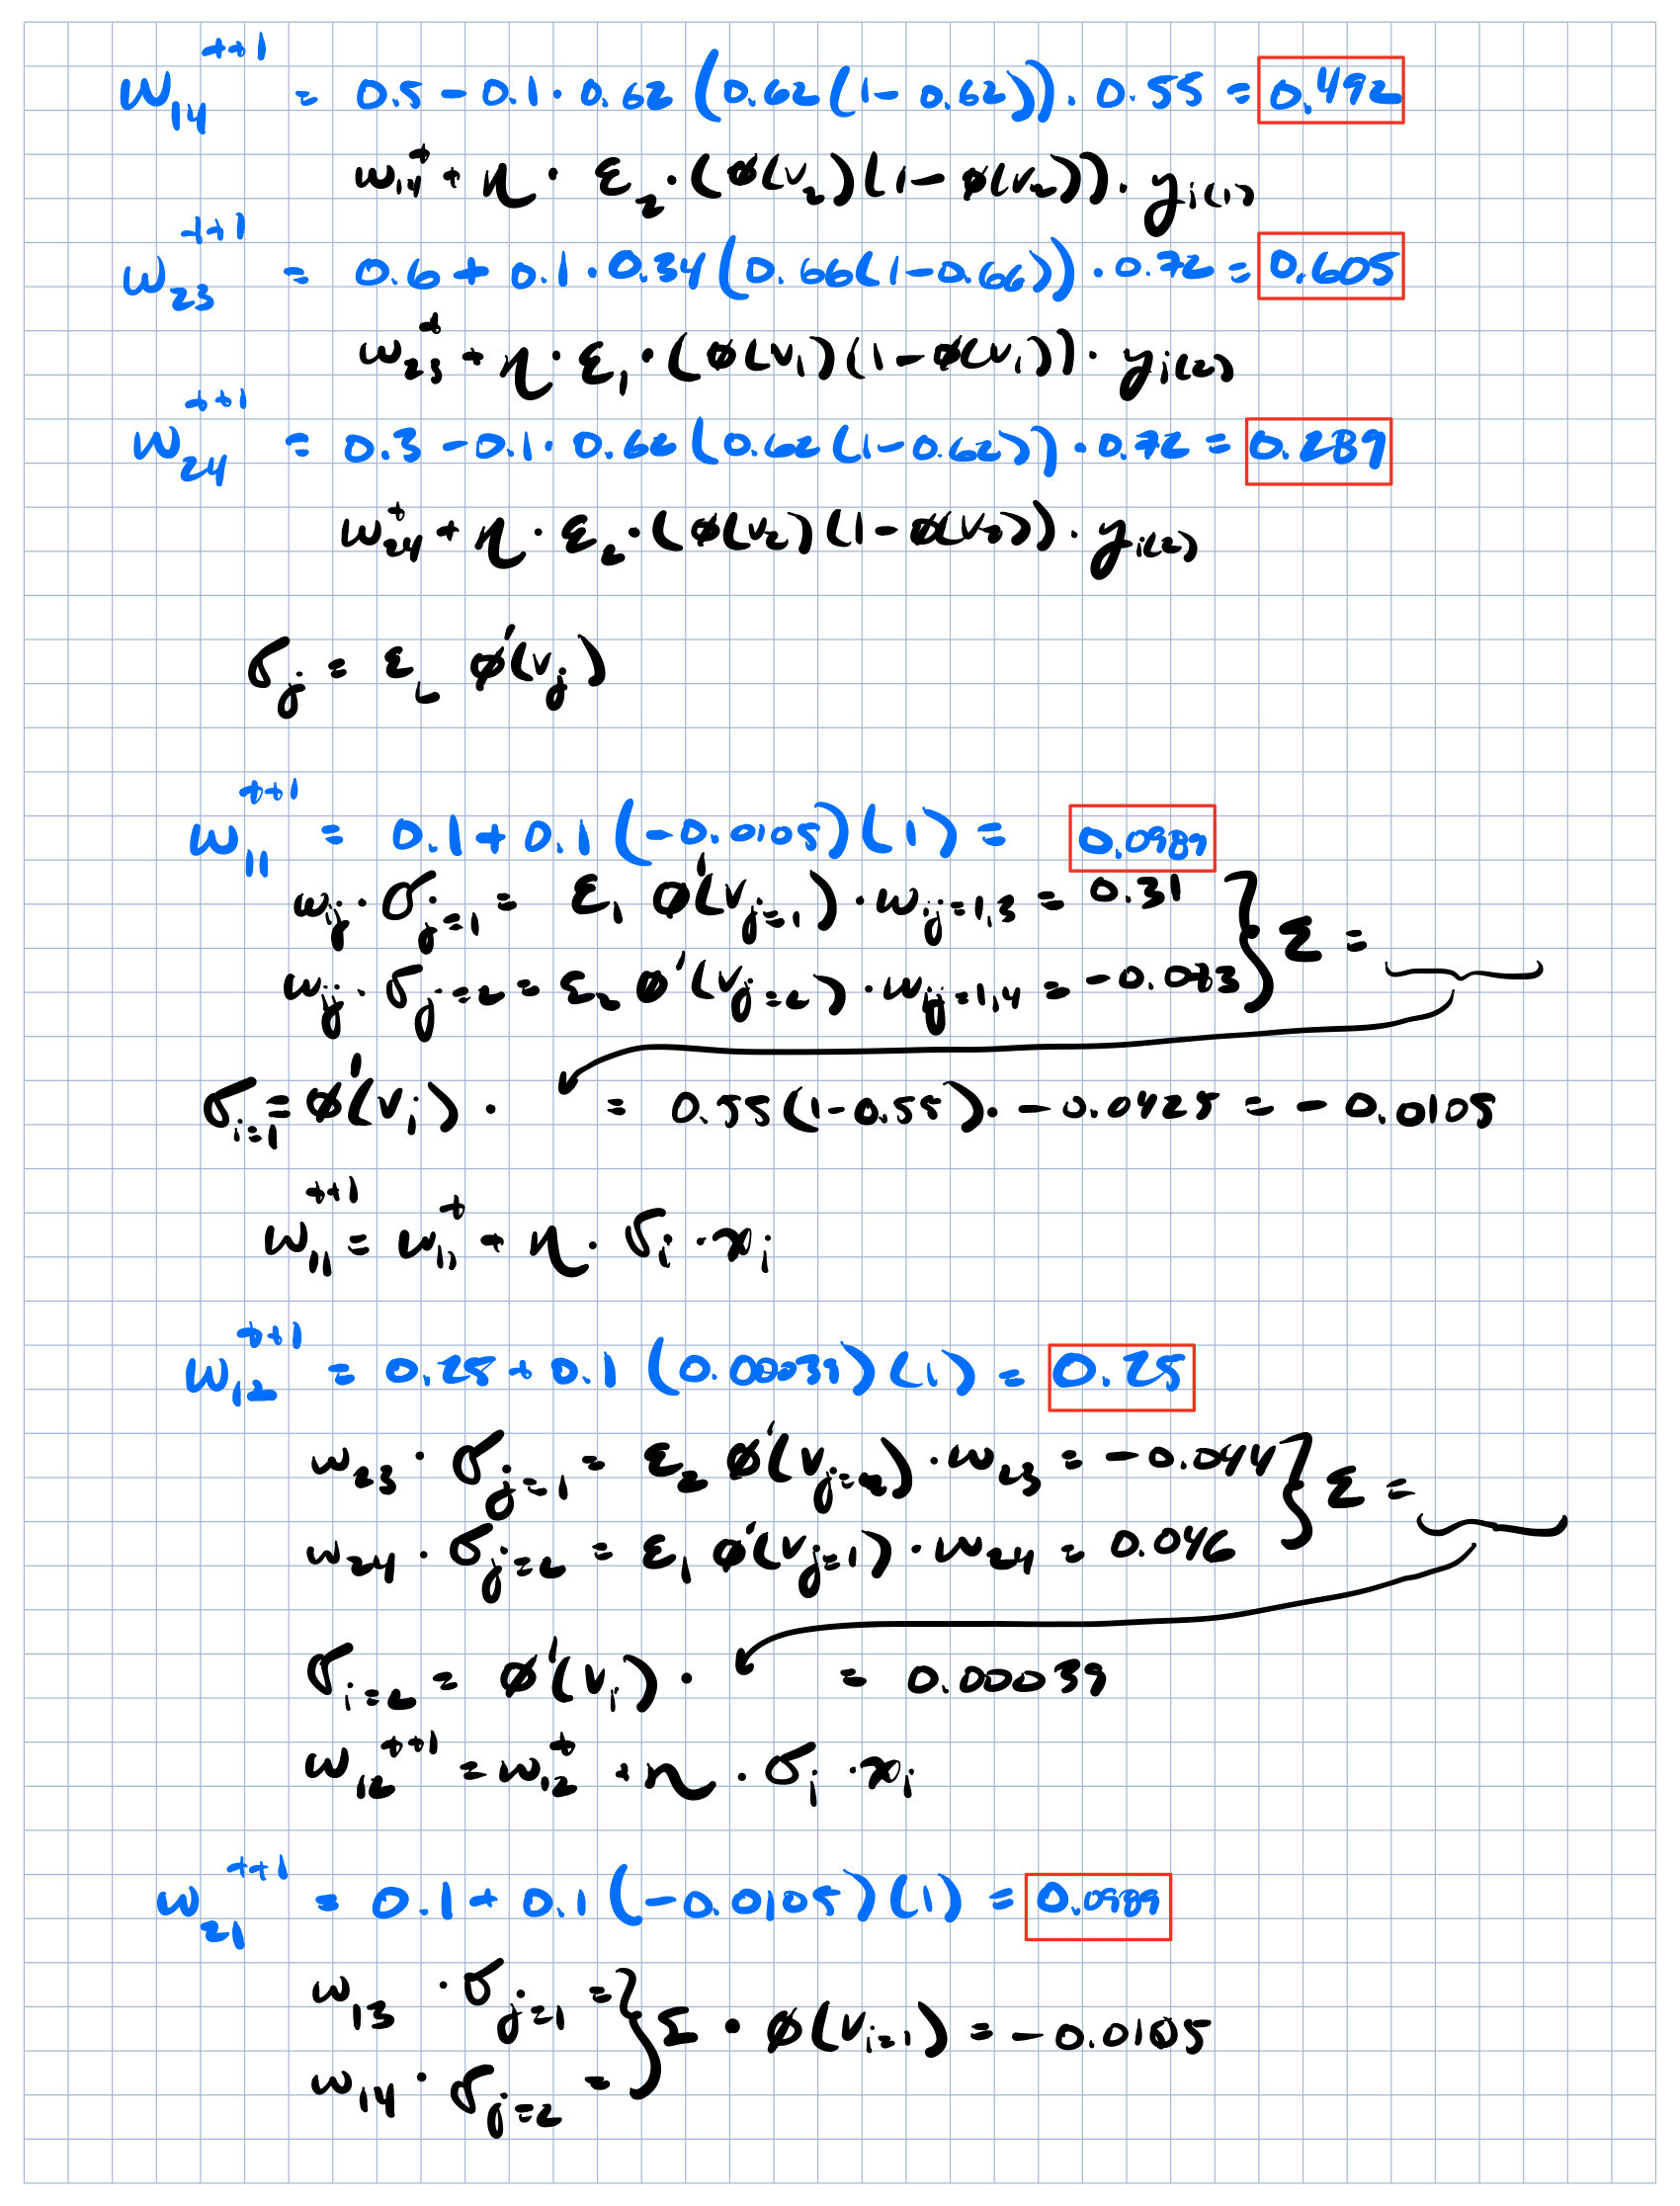 w₁₄ᵗ⁺¹ = 0.5 - 0.1 · 0.62 (0.62(1-0.62)) · 0.55 = 0.492
w₁₄ᵗ + η · ε₂ · (φ(v₂)(1-φ(v₂)) · y_i(1)
w₂₃ᵗ⁺¹ = 0.6 + 0.1 · 0.34 (0.66(1-0.66)) · 0.72 = 0.605
w₂₃ᵗ + η · ε₁ · (φ(v₁)(1-φ(v₁)) · y_i(2)
w₂₄ᵗ⁺¹ = 0.3 - 0.1 · 0.62 (0.62(1-0.62)) · 0.72 = 0.289
w₂₄ᵗ + η · ε₂ · (φ(v₂)(1-φ(v₂)) · y_i(2)
σ_j = ε_L φ'(v_j)
w₁₁ᵗ⁺¹ = 0.1 + 0.1 (-0.0105)(1) = 0.0989
w_ij · σ_j=1 = ε₁ φ'(v_j=1) · w_ij=1,3 = 0.31 } Σ =
w_ij · σ_j=2 = ε₂ φ'(v_j=2) · w_ij=1,4 = -0.073
σ_i=1 = φ'(v_i) · = 0.55(1-0.55) · -0.0425 = -0.0105
w₁₁ᵗ⁺¹ = w₁₁ᵗ + η · σ_i · x_i
w₁₂ᵗ⁺¹ = 0.25 + 0.1 (0.00039)(1) = 0.25
w₂₃ · σ_j=1 = ε₂ φ'(v_j=2) · w₂₃ = -0.044 } Σ =
w₂₄ · σ_j=2 = ε₁ φ'(v_j=1) · w₂₄ = 0.046
σ_i=2 = φ'(v_i) · = 0.00039
w₁₂ᵗ⁺¹ = w₁₂ᵗ + η · σ_i · x_i
w₂₁ᵗ⁺¹ = 0.1 + 0.1 (-0.0105)(1) = 0.0989
w₁₃ · σ_j=1 = } Σ · φ(v_i=1) = -0.0105
w₁₄ · σ_j=2 =